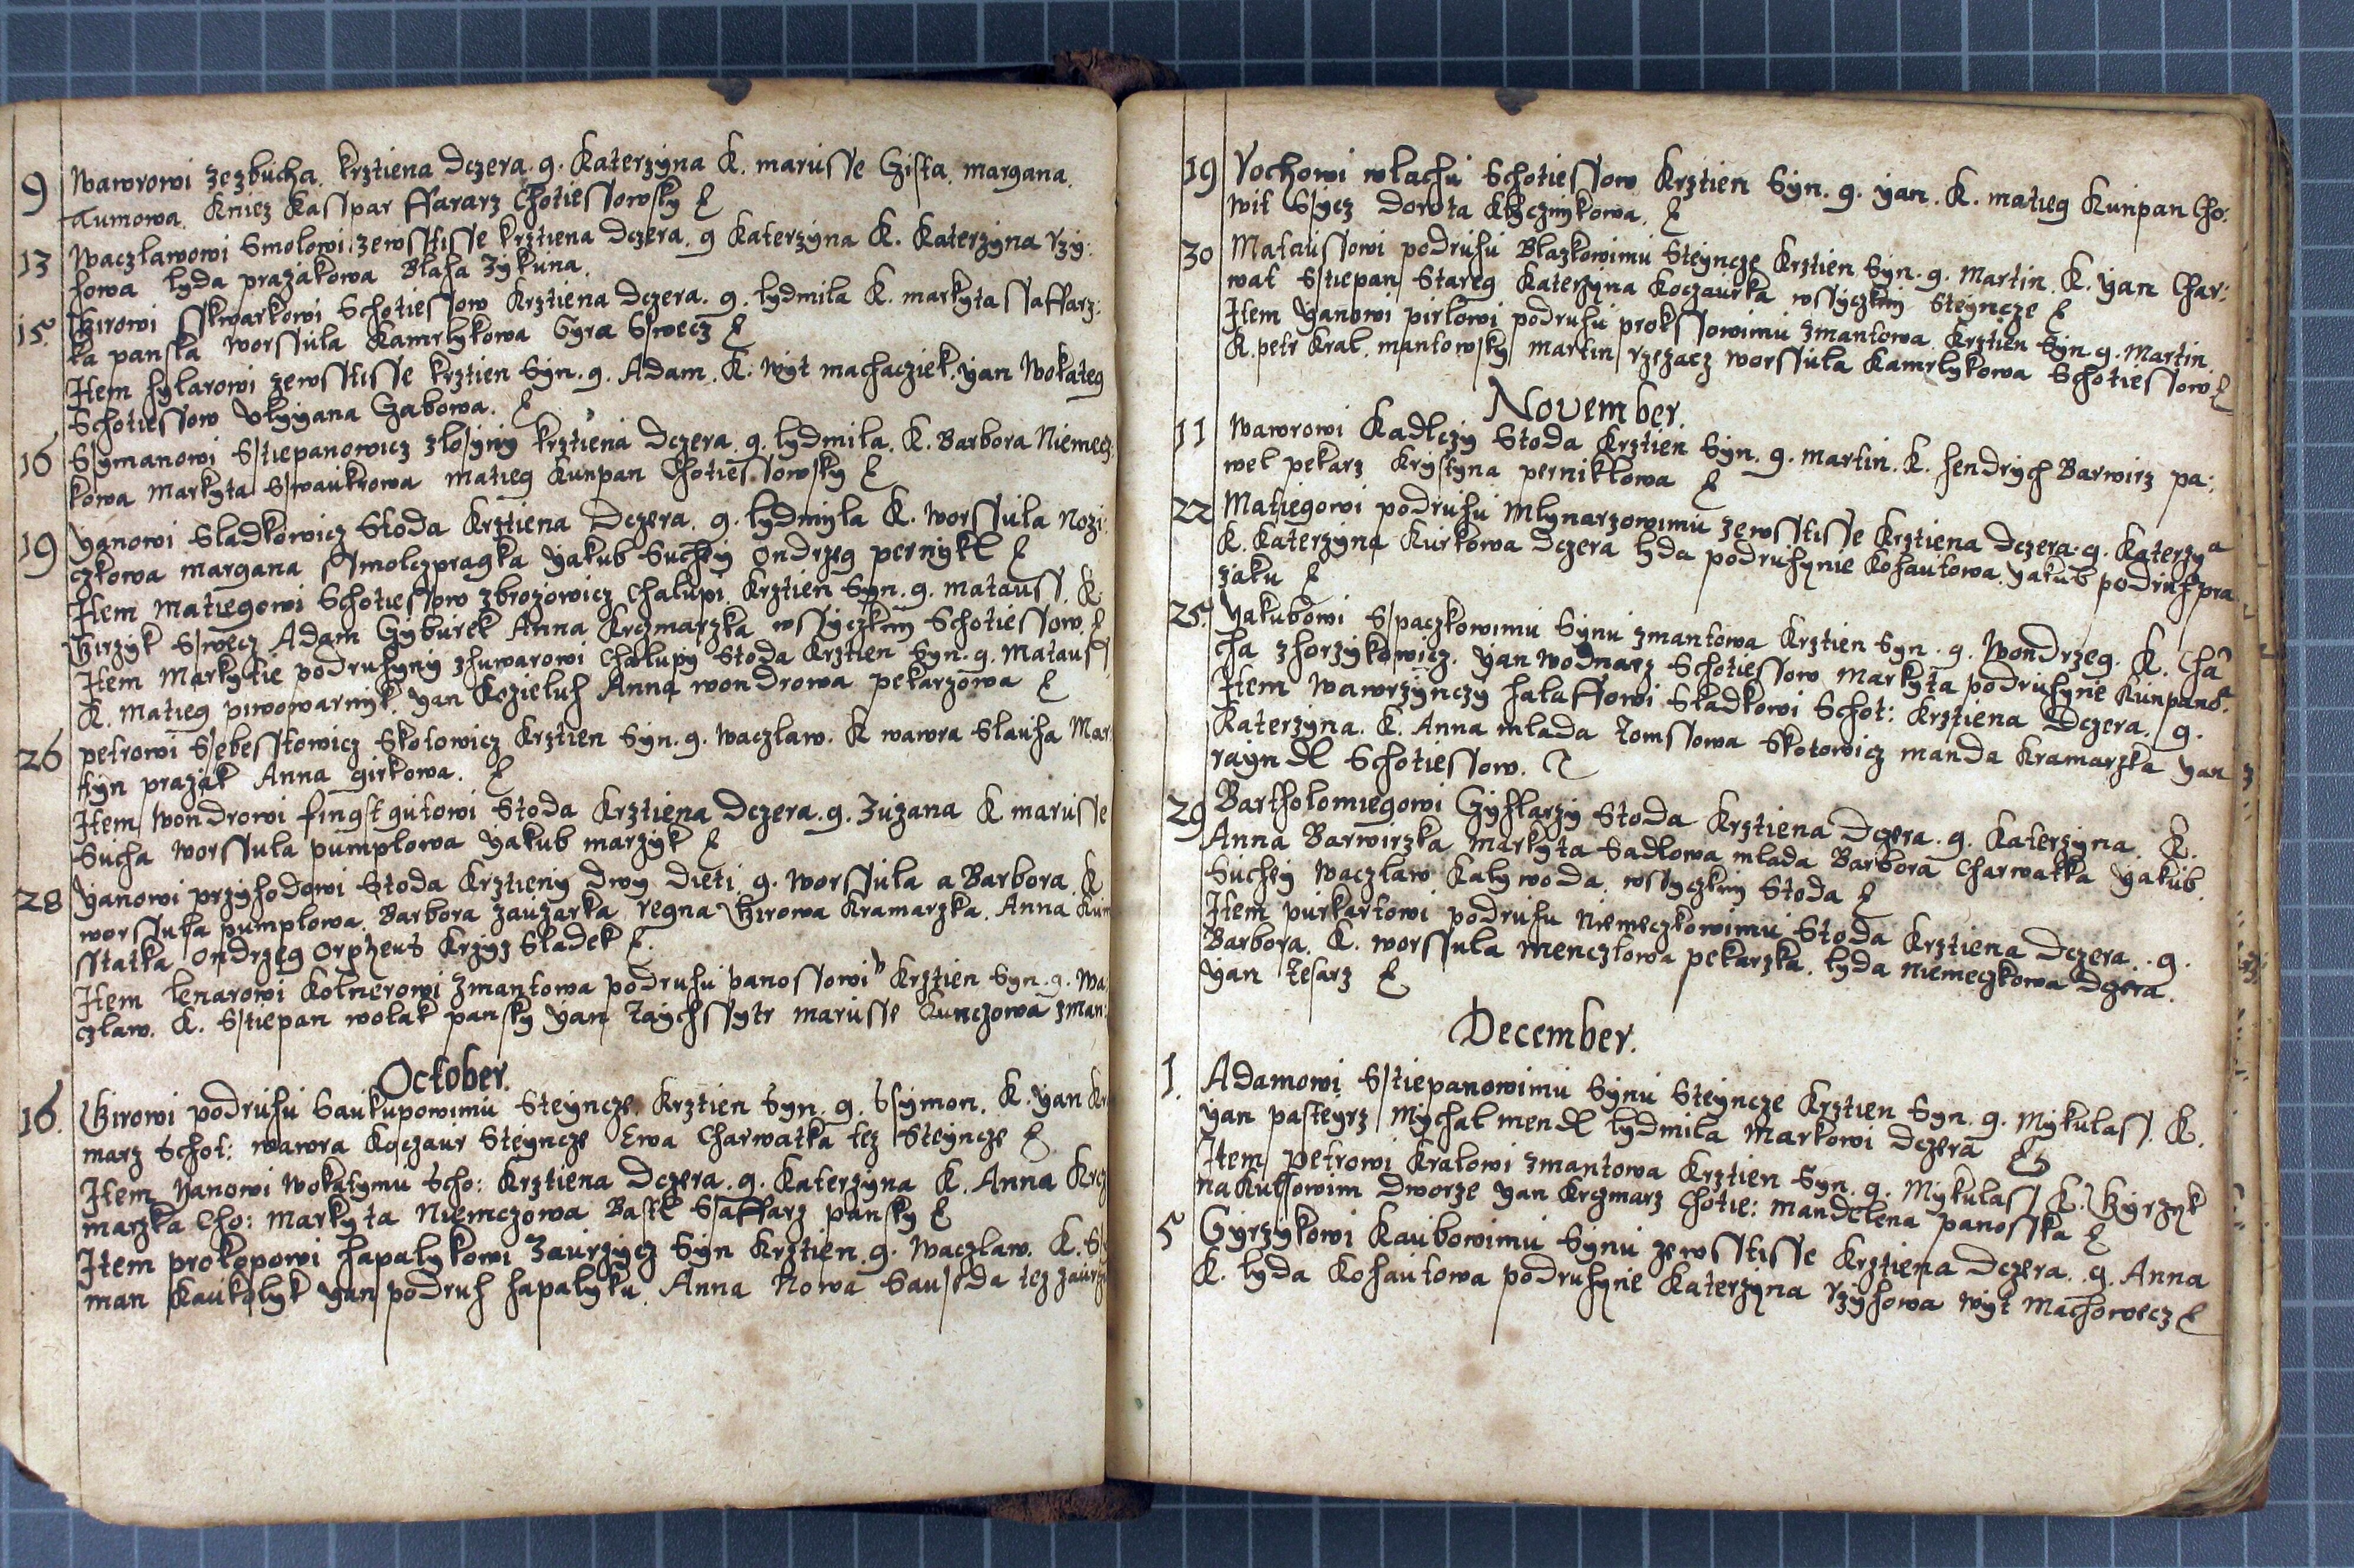 9 Wawrowi zezbucha. krztiena Dczera. g. Katerzyna K. marusse Gista. margana.
Tumowa. Kniez Kasspar ffararz Chotiessowsky
13 Waczlawowi Smolowi zewstisse krztiena Dczera. g Katerzyna K. Katerzyna rzy:
howa lyda prazakowa Blaha Zykuna.
15. Girowi Skwarkowi Schotiessow Krztiena Dczera. g. lydmila K. markyta ssaffarz:
ka panska worssula Kamrlykowa Gyra Sswecz
Item hylarowi zewstisse krztien Syn. g. Adam. K. wyt machacziek. yan Wokateg
Schotiessow Ulyyana Gabowa.
16 Ssymanowi Sstiepanowicz zlosyny krztiena Dczera. g. lydmila. K. Barbora Niemecz
kowa Markyta Sswaukrowa matieg Kunpan Chotiessowsky
19 Yanowi Sladkowicz Stoda Krztiena Dczera. g. lydmyla K. worssula Nozi:
czkowa margana Ssmolczpragka yakub Suchey Ondrzeg pernykl
Item Matiegowi Schotiessow zbrozowicz Chalupi. Krztien Syn. g. matauss. K.
Girzyk Sswecz Adam Gyburek Anna Krczmarzka wssyczkny Schotiessow.
Item Markytie podruhyny zhuwarowi Chalupy Stoda Krztien Syn. g. Matauss
K. Matieg piwowarnyk. yan Kozieluh Anna wondrowa pekarzowa
26 petrowi Ssebestowicz Skotowicz Krztien Syn. g. waczlaw. K wawra Slauha Mar
tyn prazak Anna girkowa.
Item Wondrowi fingstgutowi Stoda Krztiena Dczera. g. Zuzana K marusse
Sucha worssula pumplowa yakub marzyk
28 Yanowi przyhodowi Stoda Krztieny Dwy Dieti. g. worssula a Barbora. K
worssula pumplowa. Barbora zauzarka regna Girowa Kramarzka. Anna Kun
sstatka Ondrzeg Orpheus Krzyz Sladek
Item lenarowi Kolnerowi Zmantowa podruhu panossowi Krztien Syn. g. Wa:
czlaw. K. Sstiepan wolak pansky yan Taychssytr marusse Kunczowa zman:
October.
16. Girowi podruhu Saukupowimu Steyncze. Krztien Syn. g. Ssymon. K. yan Kr
marz Schot: wawra Koczaur Steyncze Ewa Charwatka tez Steyncze
Item Yanowi Wokatymu Scho: Krztiena Dczera. g. Katerzyna K. Anna Krcz
marzka Cho: Markyta Niemczowa Bastl Ssaffarz pansky
Item prokopowi hapalykowi Zaurzycz Syn Krztien. g. Waczlaw. K. Ss
man Kaukalyk yan podruh hapalyku. Anna Nowa Sausseda tez zaurzi
19 Rochowi wlachu Schotiessow Krztien Syn. g. yan. K. matieg Kunpan Cho:
wit Ssycz Dorota Klycznykowa.
30 Mataussowi podruhu Blazkowimu Steyncze Krztien Syn. g. Martin. K. yan Char:
wat Sstiepan Stareg Katerzyna Koczaurka wssyczkny Steyncze
Item Yanowi pirlowi podruhu prokssowimu Zmantowa. Krztien Syn. g. Martin
K. petr Kral. mantowsky martin rzezacz worssula Kamrlykowa Schotiessow
November.
11 Wawrowi Kadlczy Stoda Krztien Syn. g. martin. K. hendrych Barwirz pa:
wel pekarz Krystyna perniklowa
22 Matiegowi podruhu Mlynarzowimu zewstisse Krztiena Dczera. g. Katerzyna
K. Katerzyna Kurkowa Dczera lyda podruhynie Kohautowa. yakub podruh pra
zaku
25. Yakubowi Spaczkowimu Synu zmantowa Krztien Syn. g. Wondrzeg. K. Cha
cha zhorzykowicz. yan wodnarz Schotiessow Markyta podruhyne Kunpano:
Item Wawrzynczy halaffowi Sladkowi Schot: Krztiena Dczera. g.
Katerzyna. K. Anna mlada Tomssowa Skotowicz manda Kramarzka yan
rayndl Schotiessow.
29 Bartholomiegowi Gyhlarzy Stoda Krztiena Dczera. g. Katerzyna K.
Anna Barwirzka Markyta Sadlowa mlada Barbora Charwatka yakub
Suchey Waczlaw Kalywoda. wssyczkny Stoda
Item purkartowi podruhu Niemeczkowimu Stoda Krztiena Dczera. g.
Barbora. K. worssula Menczlowa pekarzka. lyda Niemeczkowa Dczera.
yan Tesarz
December.
1. Adamowi Sstiepanowimu Synu Steyncze Krztien Syn. g. Mykulass. K.
yan pasteyrz Mychal mendl lydmila Markowi Dczera
Item petrowi Kralowi zmantowa Krztien Syn. g. Mykulass K. Gyrzyk
na Kultsowim Dworze yan Krczmarz Chotie: mandelena panosska
5 Gyrzykowi Kaubowimu Synu zewstisse Krztiena Dczera. g. Anna
K. lyda Kohautowa podruhyne Katerzyna rzyhowa wyt Machowecz